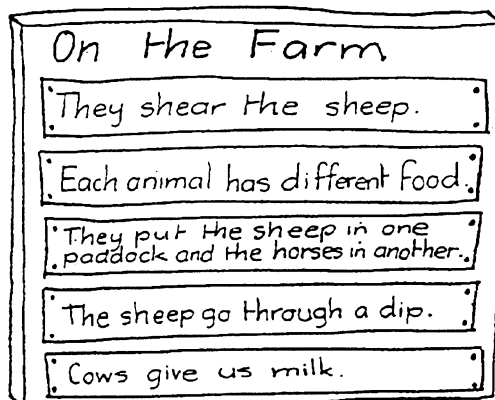 On the Farm
They shear the sheep.
Each animal has different food.
They put the sheep in one
paddock and the horses in another.
The sheep go through a dip.
Cows give us milk.